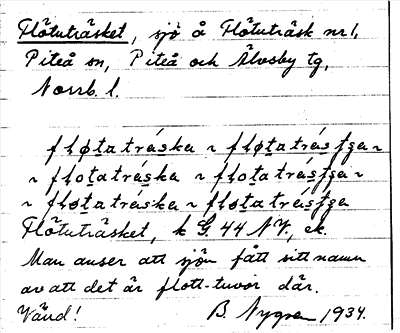 Flötuträsket, sjö å Flötuträsk nr 1,
Piteå sn, Piteå och Älvsby tg,
Norrb. l.
fløtatráska ~ fløtatrásʃga ~
~ flotatráska ~ flotatrásʃga ~
~ fløtatráska ~ fløtatrásʃga
Flötuträsket, k G. 44 NV., ek.
Man anser att sjön fått sitt namn
av att det är flott-tuvor där.
Vänd! B. Nygren 1934.